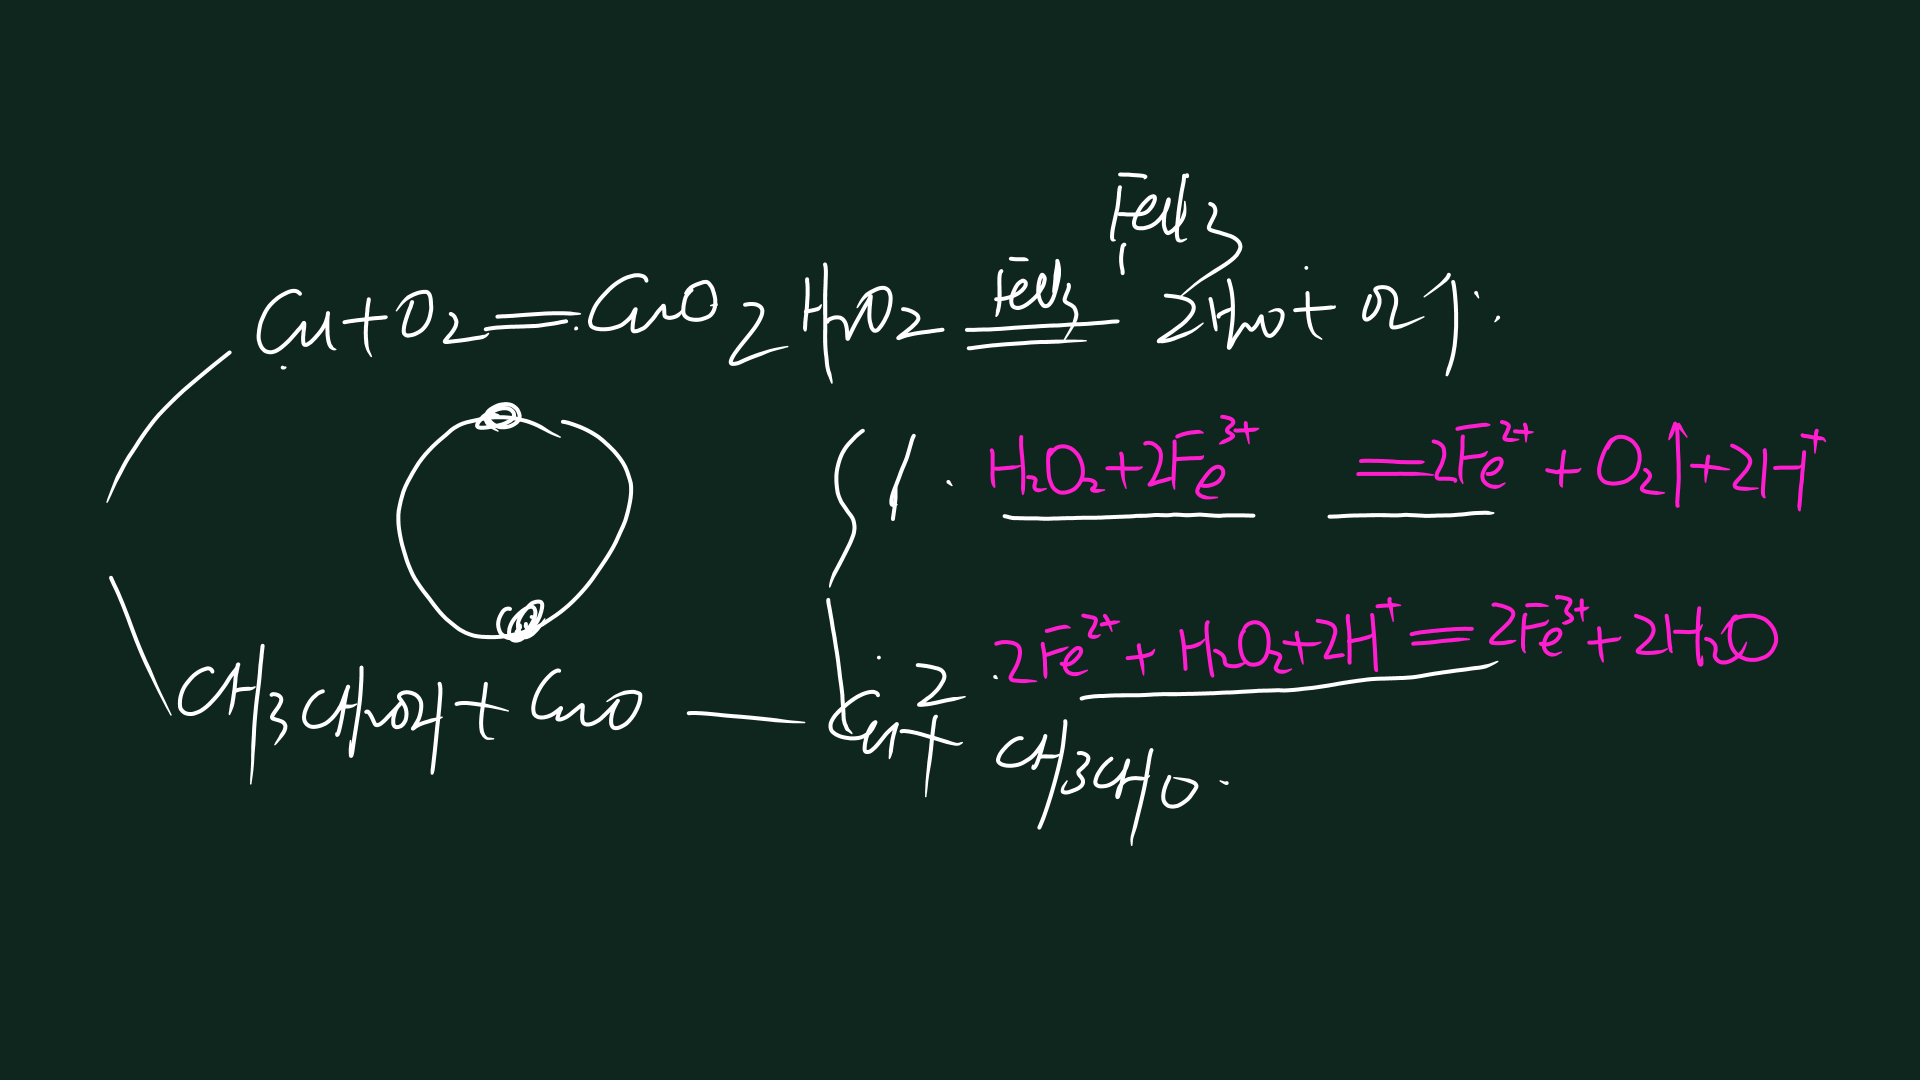 FeCl3
Cu+O2=CuO
2H2O2 FeCl3 = 2H2O+O2↑
1. H2O2+2Fe³⁺ =2Fe²⁺+O2↑+2H⁺
2. 2Fe²⁺+H2O2+2H⁺=2Fe³⁺+2H2O
CH3CH2OH+CuO — Cu+CH3CHO